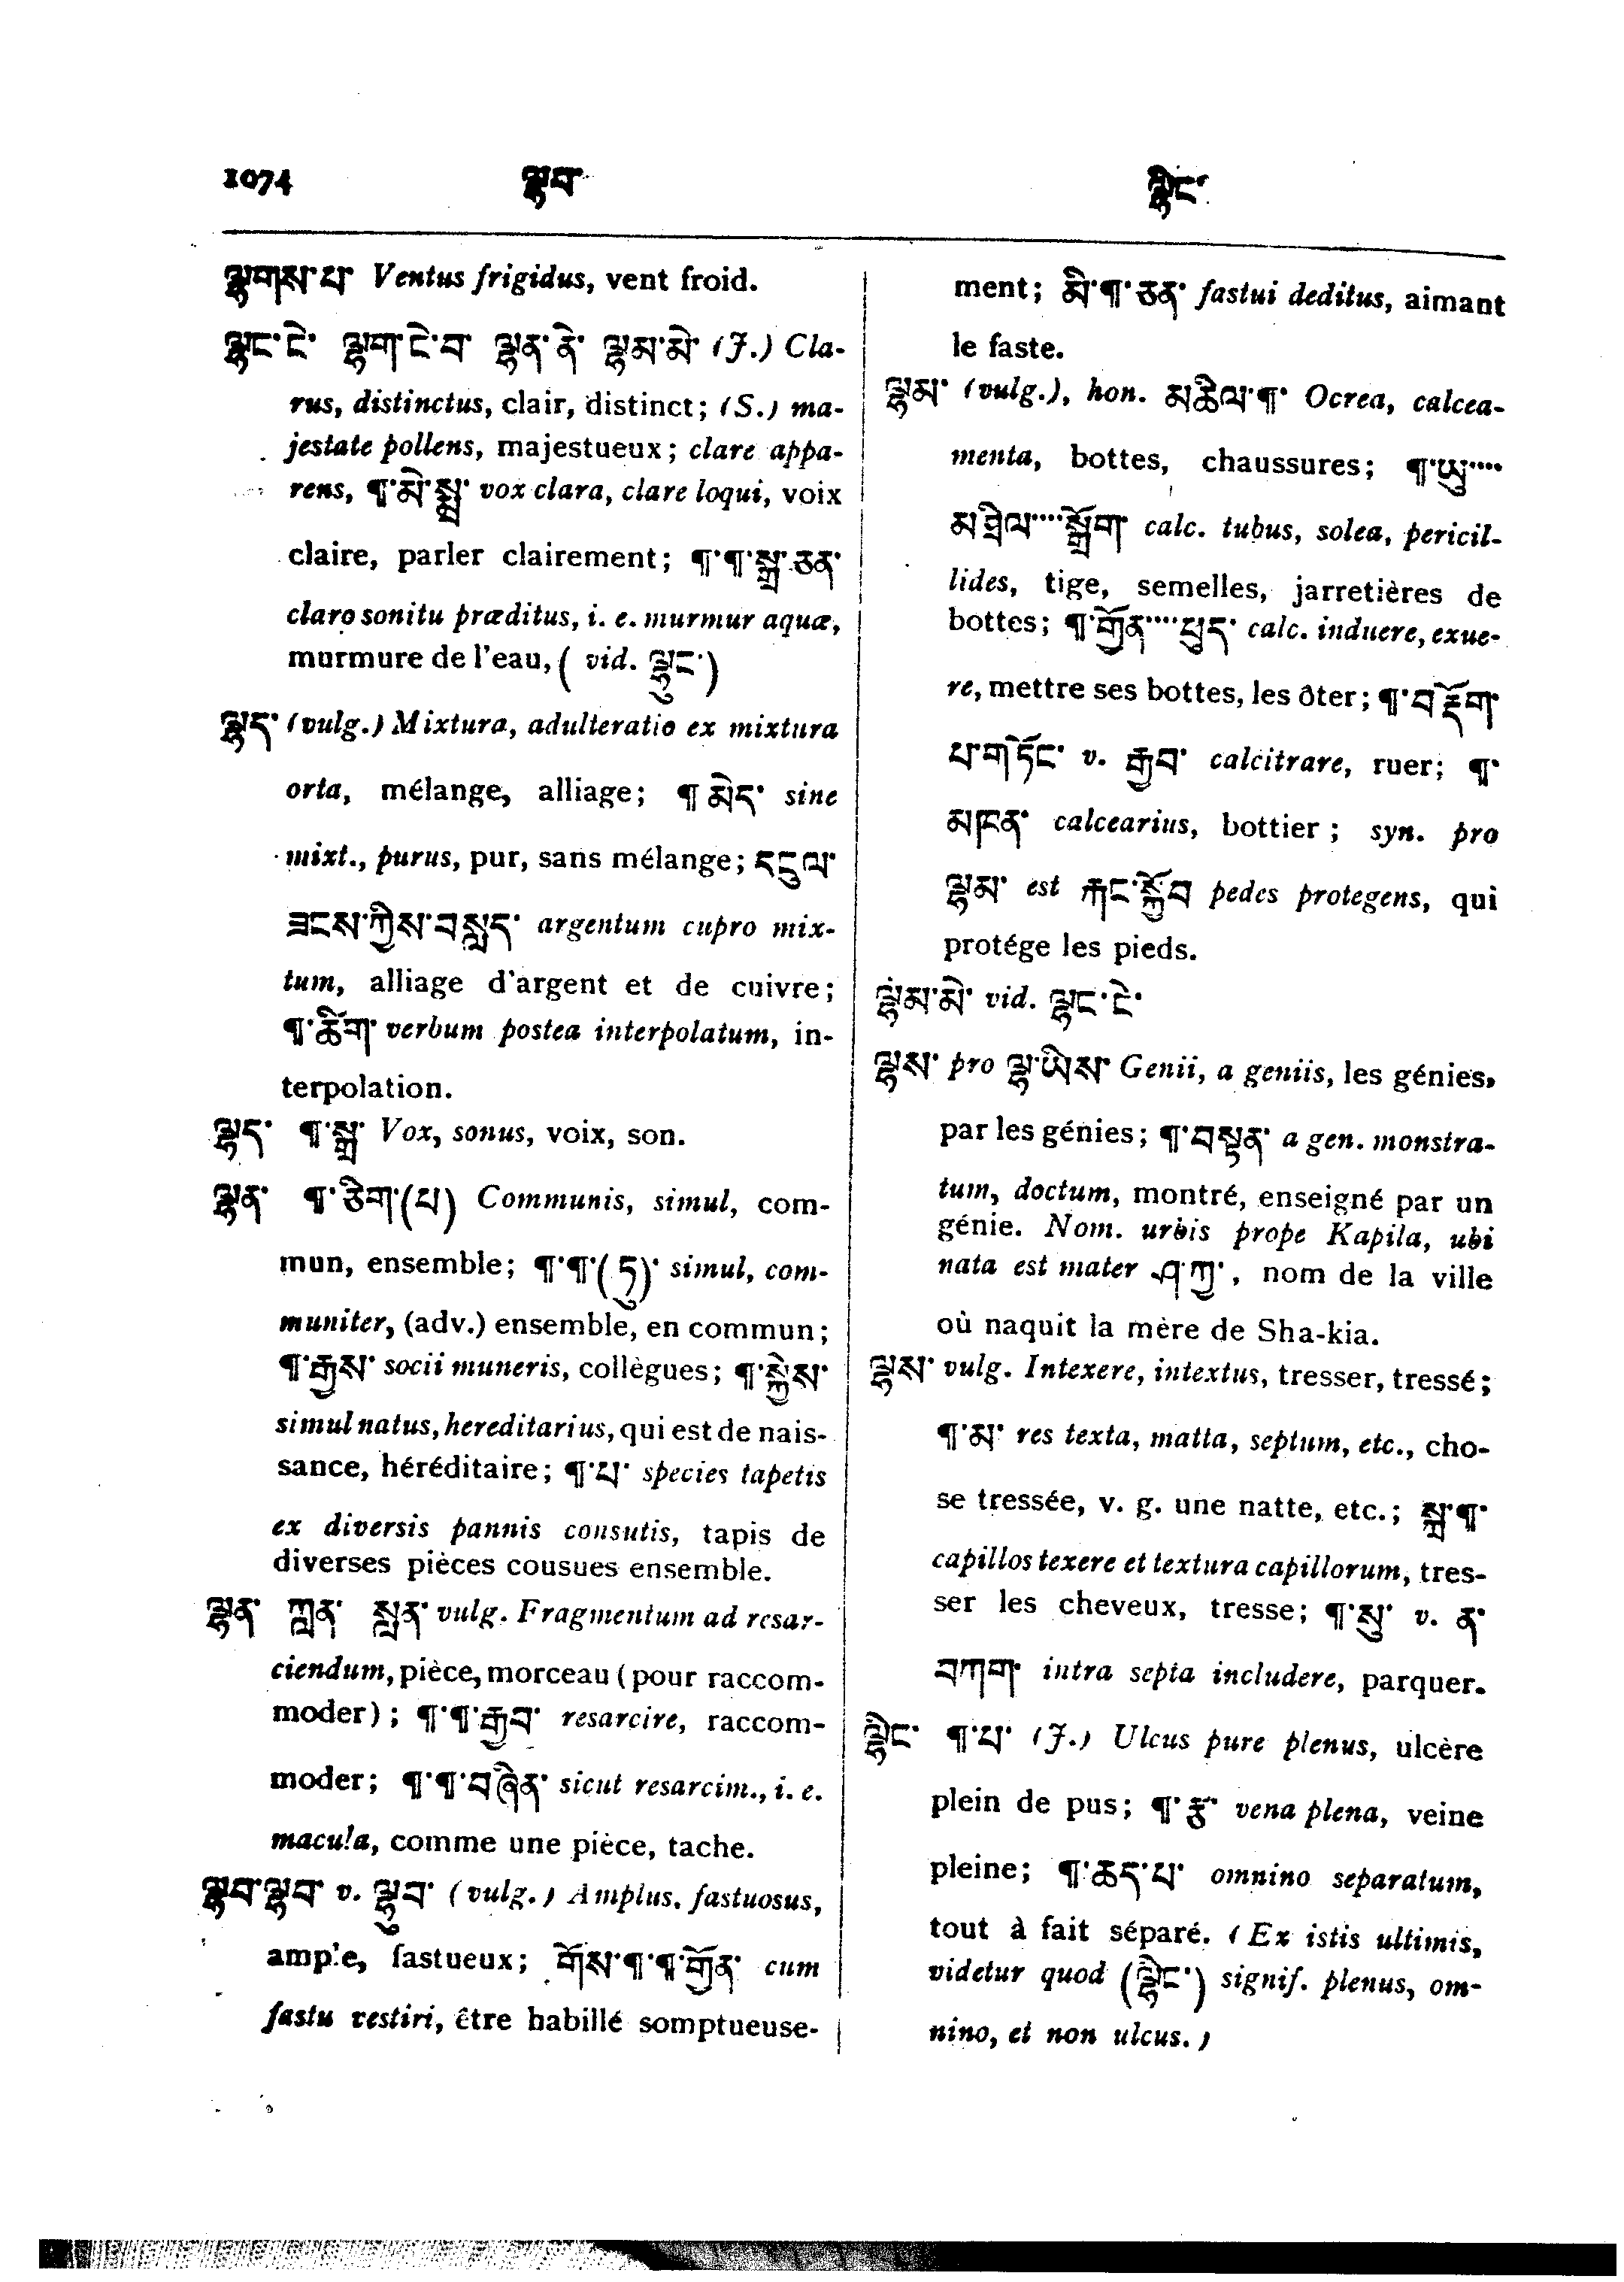 1074 ལྷབ་ ལྷིང་
ལྷགས་པ་ Ventus frigidus, vent froid.
ལྷང་ངེ་ ལྷག་ངེ་བ་ ལྷན་ནེ་ ལྷམ་མེ་ (J.) Cla-
rus, distinctus, clair, distinct; (S.) ma-
jestate pollens, majestueux; clare appa-
rens, ¶་མེ་སྨྲ་ vox clara, clare loqui, voix
claire, parler clairement; ¶་¶་སྒྲ་ཅན་
claro sonitu præditus, i. e. murmur aquæ,
murmure de l'eau, ( vid. ལྷུང་)
ལྷད་ (vulg.) Mixtura, adulteratio ex mixtura
orta, mélange, alliage; ¶ མེད་ sine
mixt., purus, pur, sans mélange; དངུལ་
ཟངས་ཀྱིས་བསླད་ argentum cupro mix-
tum, alliage d'argent et de cuivre;
¶་ཚིག་ verbum postea interpolatum, in-
terpolation.
ལྷད་ ¶་སྒྲ་ Vox, sonus, voix, son.
ལྷན་ ¶་ཅིག་(པ) Communis, simul, com-
mun, ensemble; ¶་¶་(ཏུ)་ simul, com-
muniter, (adv.) ensemble, en commun;
¶་རྒྱས་ socii muneris, collègues; ¶་སྐྱེས་
simul natus, hereditarius, qui est de nais-
sance, héréditaire; ¶་པ་ species tapetis
ex diversis pannis consutis, tapis de
diverses pièces cousues ensemble.
ལྷན་ ཀླན་ སླན་ vulg. Fragmentum ad resar-
ciendum, pièce, morceau (pour raccom-
moder); ¶་¶་རྒྱབ་ resarcire, raccom-
moder; ¶་¶་བཞིན་ sicut resarcim., i. e.
macula, comme une pièce, tache.
ལྷབ་ལྷབ་ v. ལྷུབ་ (vulg.) Amplus, fastuosus,
ample, fastueux; གོས་¶་¶་གྱོན་ cum
fastu vestiri, être habillé somptueuse-
ment; མི་¶་ཅན་ fastui deditus, aimant
le faste.
ལྷམ་ (vulg.), hon. མཆིལ་¶་ Ocrea, calcea-
menta, bottes, chaussures; ¶་ཡུ་····
མཐིལ་····སྒྲོག་ calc. tubus, solea, pericil-
lides, tige, semelles, jarretières de
bottes; ¶་གྱོན་····ཕུད་ calc. induere, exue-
re, mettre ses bottes, les ôter; ¶་བ་རྡོག་
པ་གཏོང་ v. རྒྱབ་ calcitrare, ruer; ¶་
མཁན་ calcearius, bottier; syn. pro
ལྷམ་ est རྐང་སྐྱོབ pedes protegens, qui
protége les pieds.
ལྷམ་མེ་ vid. ལྷང་ངེ་
ལྷས་ pro ལྷ་ཡིས་ Genii, a geniis, les génies,
par les génies; ¶་བསྟན་ a gen. monstra-
tum, doctum, montré, enseigné par un
génie. Nom. urbis prope Kapila, ubi
nata est mater ཤ་ཀྱ་, nom de la ville
où naquit la mère de Sha-kia.
ལྷས་ vulg. Intexere, intextus, tresser, tressé;
¶་མ་ res texta, matta, septum, etc., cho-
se tressée, v. g. une natte, etc.; སྐྲ་¶་
capillos texere et textura capillorum, tres-
ser les cheveux, tresse; ¶་སུ་ v. ན་
བཀག་ intra septa includere, parquer.
ལྷིང་ ¶་པ་ (J.) Ulcus pure plenus, ulcère
plein de pus; ¶་རྩ་ vena plena, veine
pleine; ¶་ཆད་པ་ omnino separatum,
tout à fait séparé. (Ex istis ultimis,
videtur quod (ལྷིང་) signif. plenus, om-
nino, et non ulcus.)